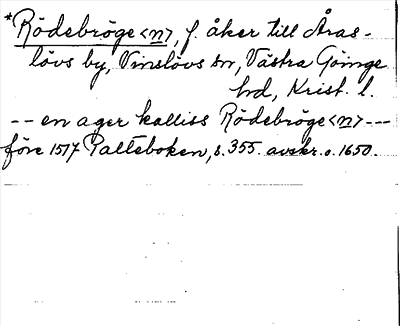 *Rödebröge<n>, f. åker till Åras-
lövs by, Vinslövs sn, Västra Göinge
hd, Krist. l.
-- en ager kalliss Rödebröge<n> ---
före 1517 Palteboken, s. 355. avskr. o. 1650.